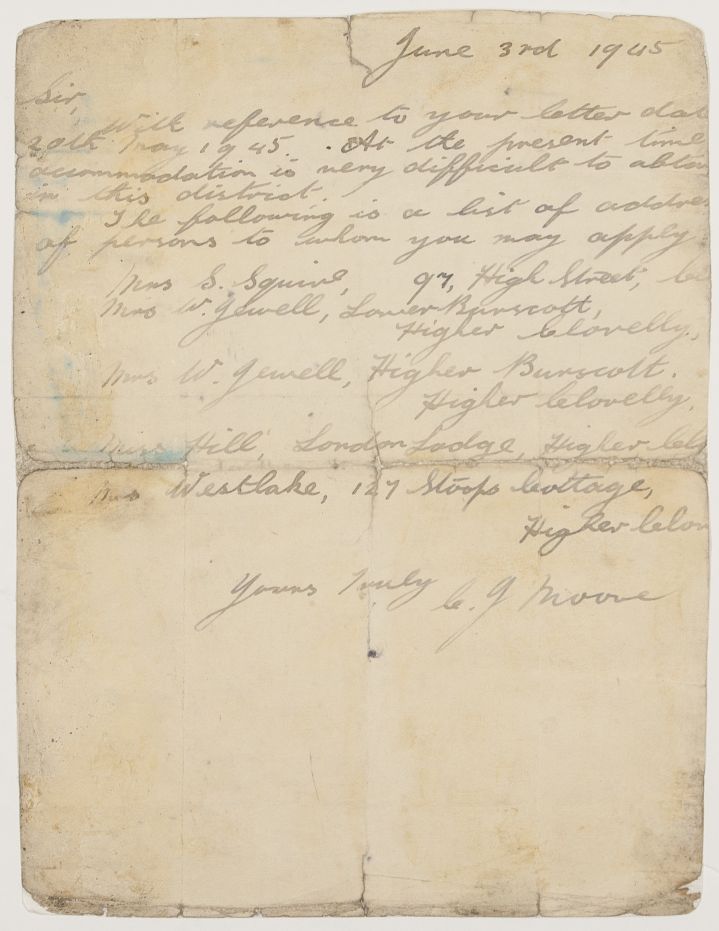 June 3rd 1945
Sir,
With reference to your letter dat
20th May 1945. At the present time
accommodation is very difficult to obtai
in this district.
The following is a list of addre
of persons to whom you may apply
Mrs S. Squire, 97, High Street, Cl
Mrs W. Jewell, Lower Burscott,
Higher Clovelly,
Mrs W. Jewell, Higher Burscott.
Higher Clovelly,
Hill, London Lodge, Higher Clo
Mrs Westlake, 127 Stoops Cottage,
Higher Clov
Yours Truly C. J Moore